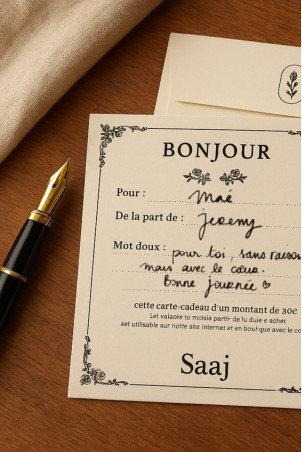 BONJOUR
Pour : Maé
De la part de : Jeremy
Mot doux : pour toi, sans raison
mais avec le cœur.
Bonne journée ♡
cette carte-cadeau d'un montant de 30€
Let valaote to moisia partir de lu duie e achet
est utilisable sur notre site internet et en boutque avec le co
Saaj